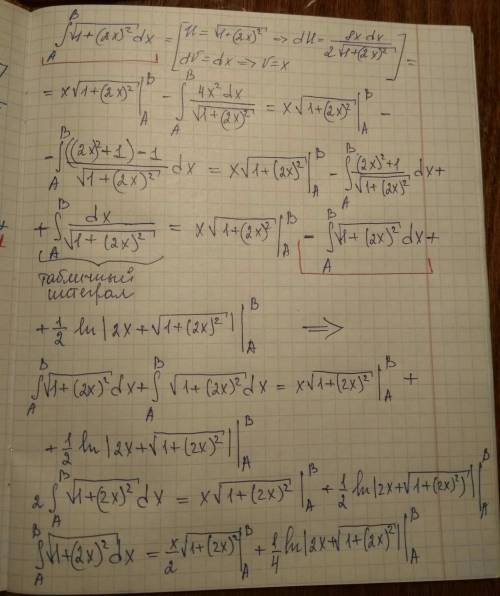 ∫_A^B √(1+(2x)²) dx = [U = √(1+(2x)²) => dU = 8x dx / 2√(1+(2x)²); dV = dx => V = x] =
= x√(1+(2x)²) |_A^B - ∫_A^B 4x² dx / √(1+(2x)²) = x√(1+(2x)²) |_A^B -
- ∫_A^B ((2x)²+1)-1 / √(1+(2x)²) dx = x√(1+(2x)²) |_A^B - ∫_A^B (2x)²+1 / √(1+(2x)²) dx +
+ ∫_A^B dx / √(1+(2x)²) = x√(1+(2x)²) |_A^B - ∫_A^B √(1+(2x)²) dx +
табличный
интеграл
+ 1/2 ln|2x+√(1+(2x)²)| |_A^B =>
∫_A^B √(1+(2x)²) dx + ∫_A^B √(1+(2x)²) dx = x√(1+(2x)²) |_A^B +
+ 1/2 ln|2x+√(1+(2x)²)| |_A^B
2 ∫_A^B √(1+(2x)²) dx = x√(1+(2x)²) |_A^B + 1/2 ln|2x+√(1+(2x)²)| |_A^B
∫_A^B √(1+(2x)²) dx = x/2 √(1+(2x)²) |_A^B + 1/4 ln|2x+√(1+(2x)²)| |_A^B